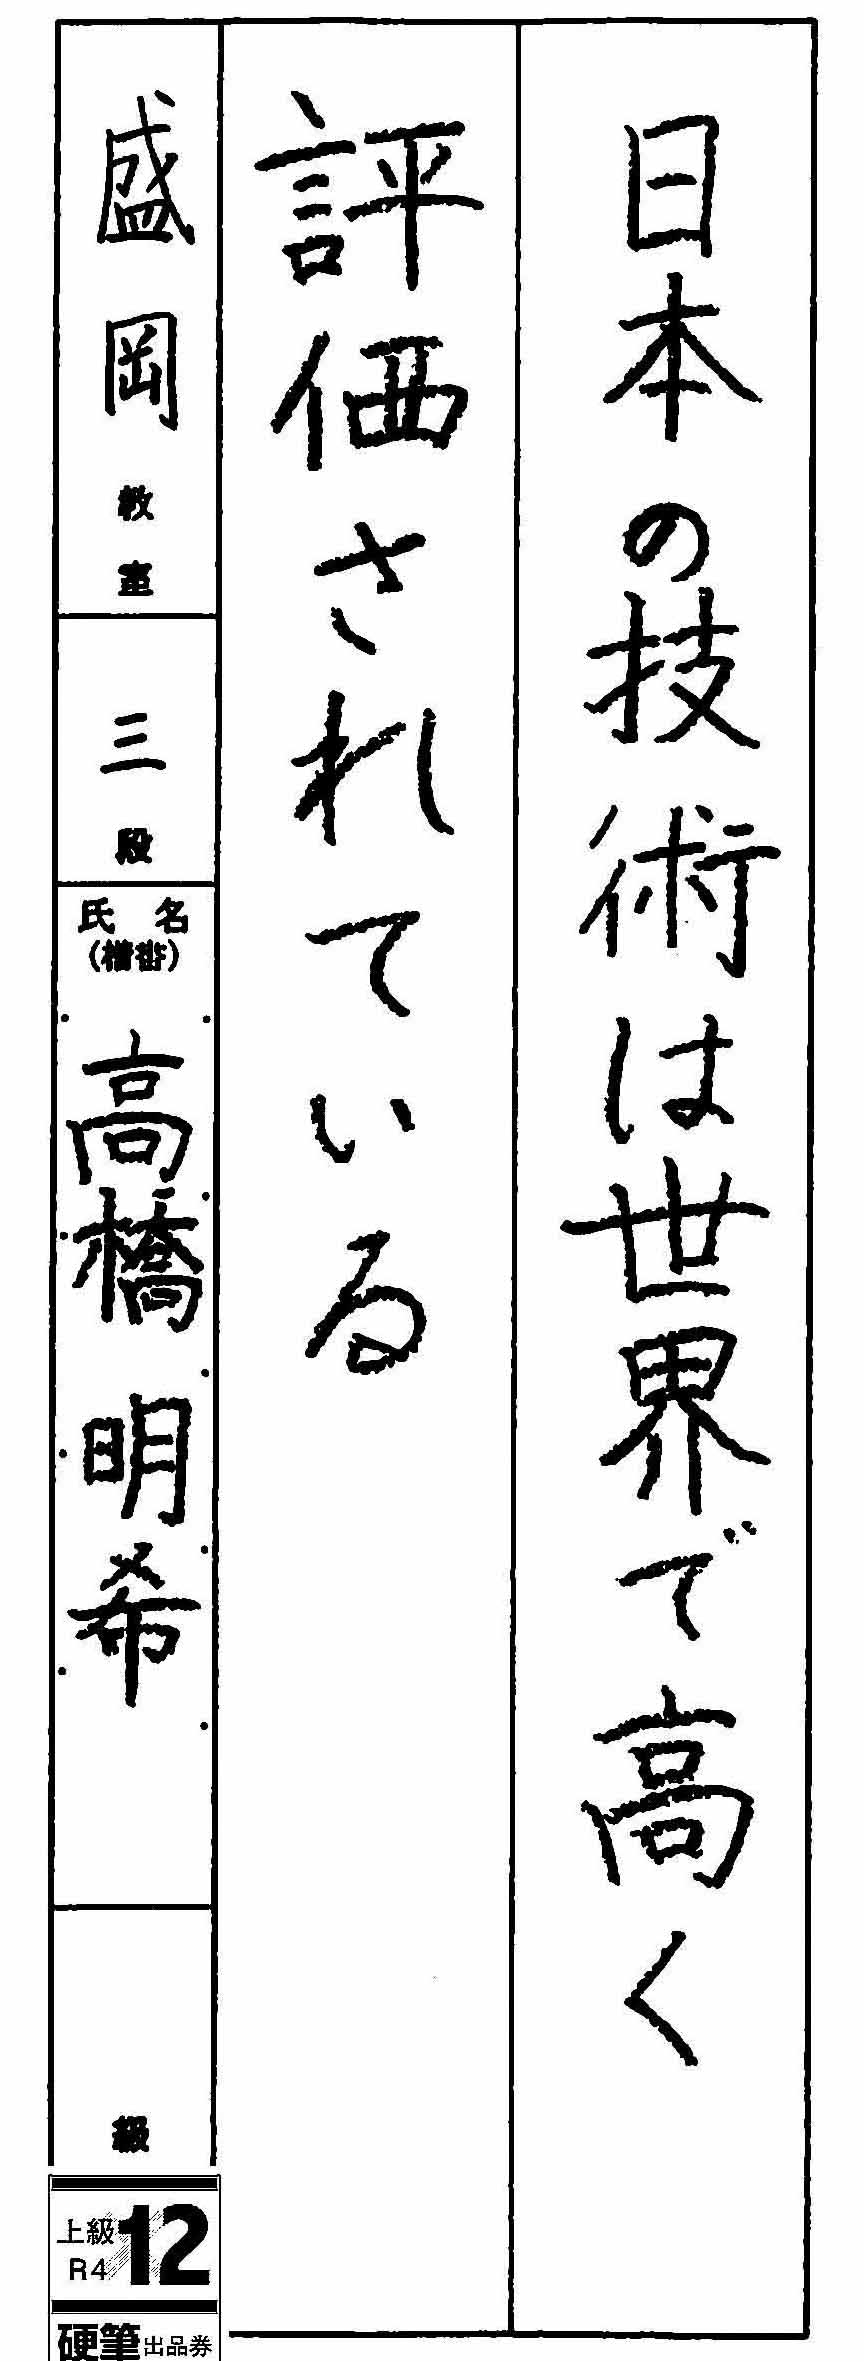 日本の技術は世界で高く
評価されている
盛岡教室
三段
氏名
(楷書)
高橋明希
級
上級
R4
12
硬筆出品券